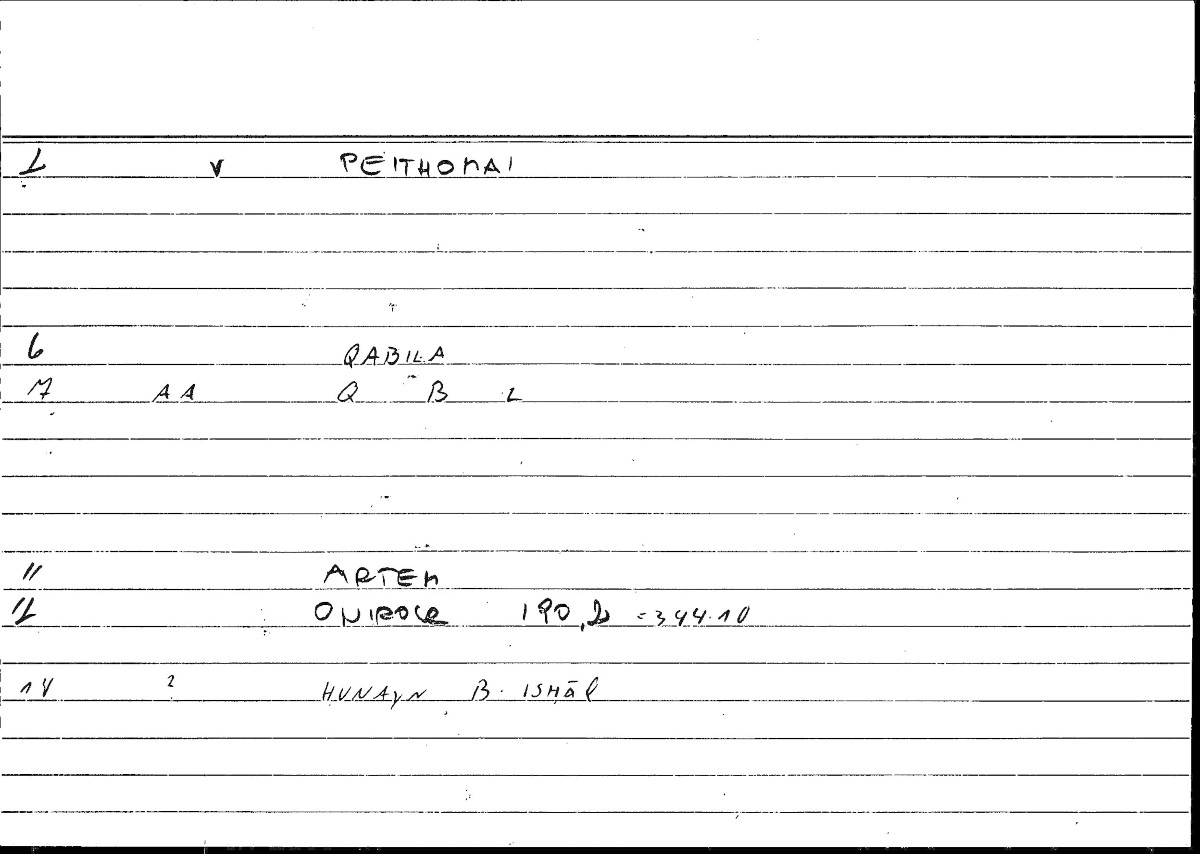 1 V PEITHOMAI
6 QABILA
7 AA Q B L
11 ARTEM
12 ONIROCR 190, =344.10
14 2 HUNAYN B. ISHĀQ